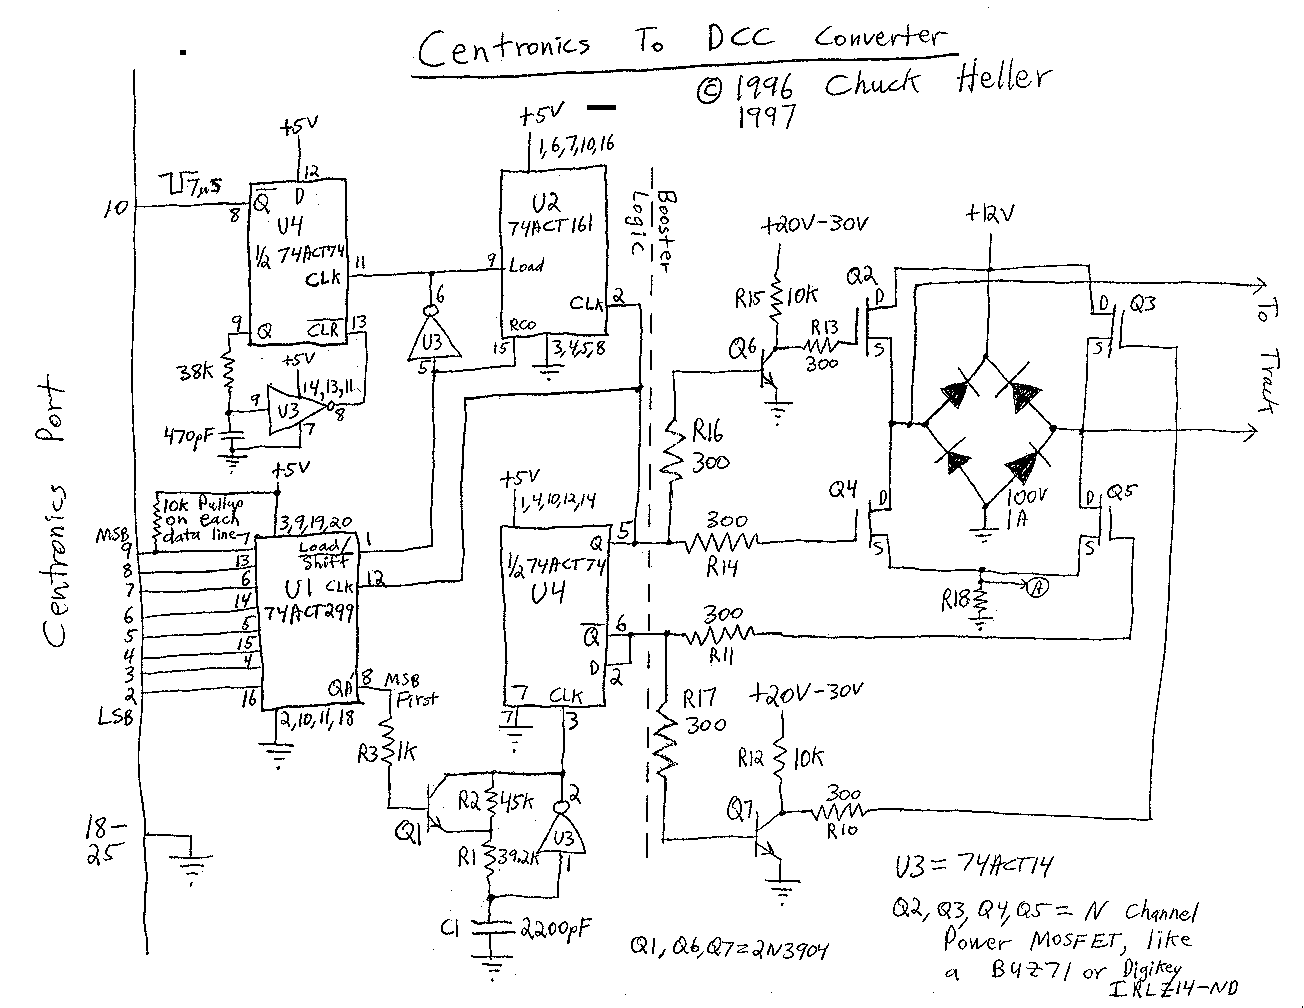 Centronics To DCC Converter
© 1996 Chuck Heller
1997
Centronics Port
10
7μs
+5V
12
Q
D
8
U4
1/2 74ACT74
CLK
11
9
Q
CLR
13
38K
+5V
14,13,11
9
U3
8
7
470pF
+5V
1,6,7,10,16
U2
74ACT161
9
Load
CLK
2
RCO
15
3,4,5,8
6
U3
5
Booster
Logic
+5V
10K Pullup
on each
data line
3,9,19,20
MSB
9
8
7
6
5
4
3
2
LSB
7
13
6
14
5
15
4
16
Load/
Shift
1
U1
CLK
12
74ACT299
QD'
8
MSB
First
2,10,11,18
R3
1K
Q1
R2
45K
R1
39.2K
2
U3
1
C1
2200pF
18-
25
+5V
1,4,10,12,14
Q
5
1/2 74ACT74
U4
Q
6
D
2
7
CLK
7
3
+20V-30V
R15
10K
R13
300
Q6
Q2
D
S
R16
300
300
R14
Q4
D
S
300
R11
R17
300
+20V-30V
R12
10K
300
R10
Q7
+12V
D
Q3
S
To
Track
100V
1A
D
Q5
S
R18
A
U3 = 74ACT14
Q2, Q3, Q4, Q5 = N Channel
Power MOSFET, like
a BUZ71 or Digikey
IRLZ14-ND
Q1, Q6, Q7 = 2N3904